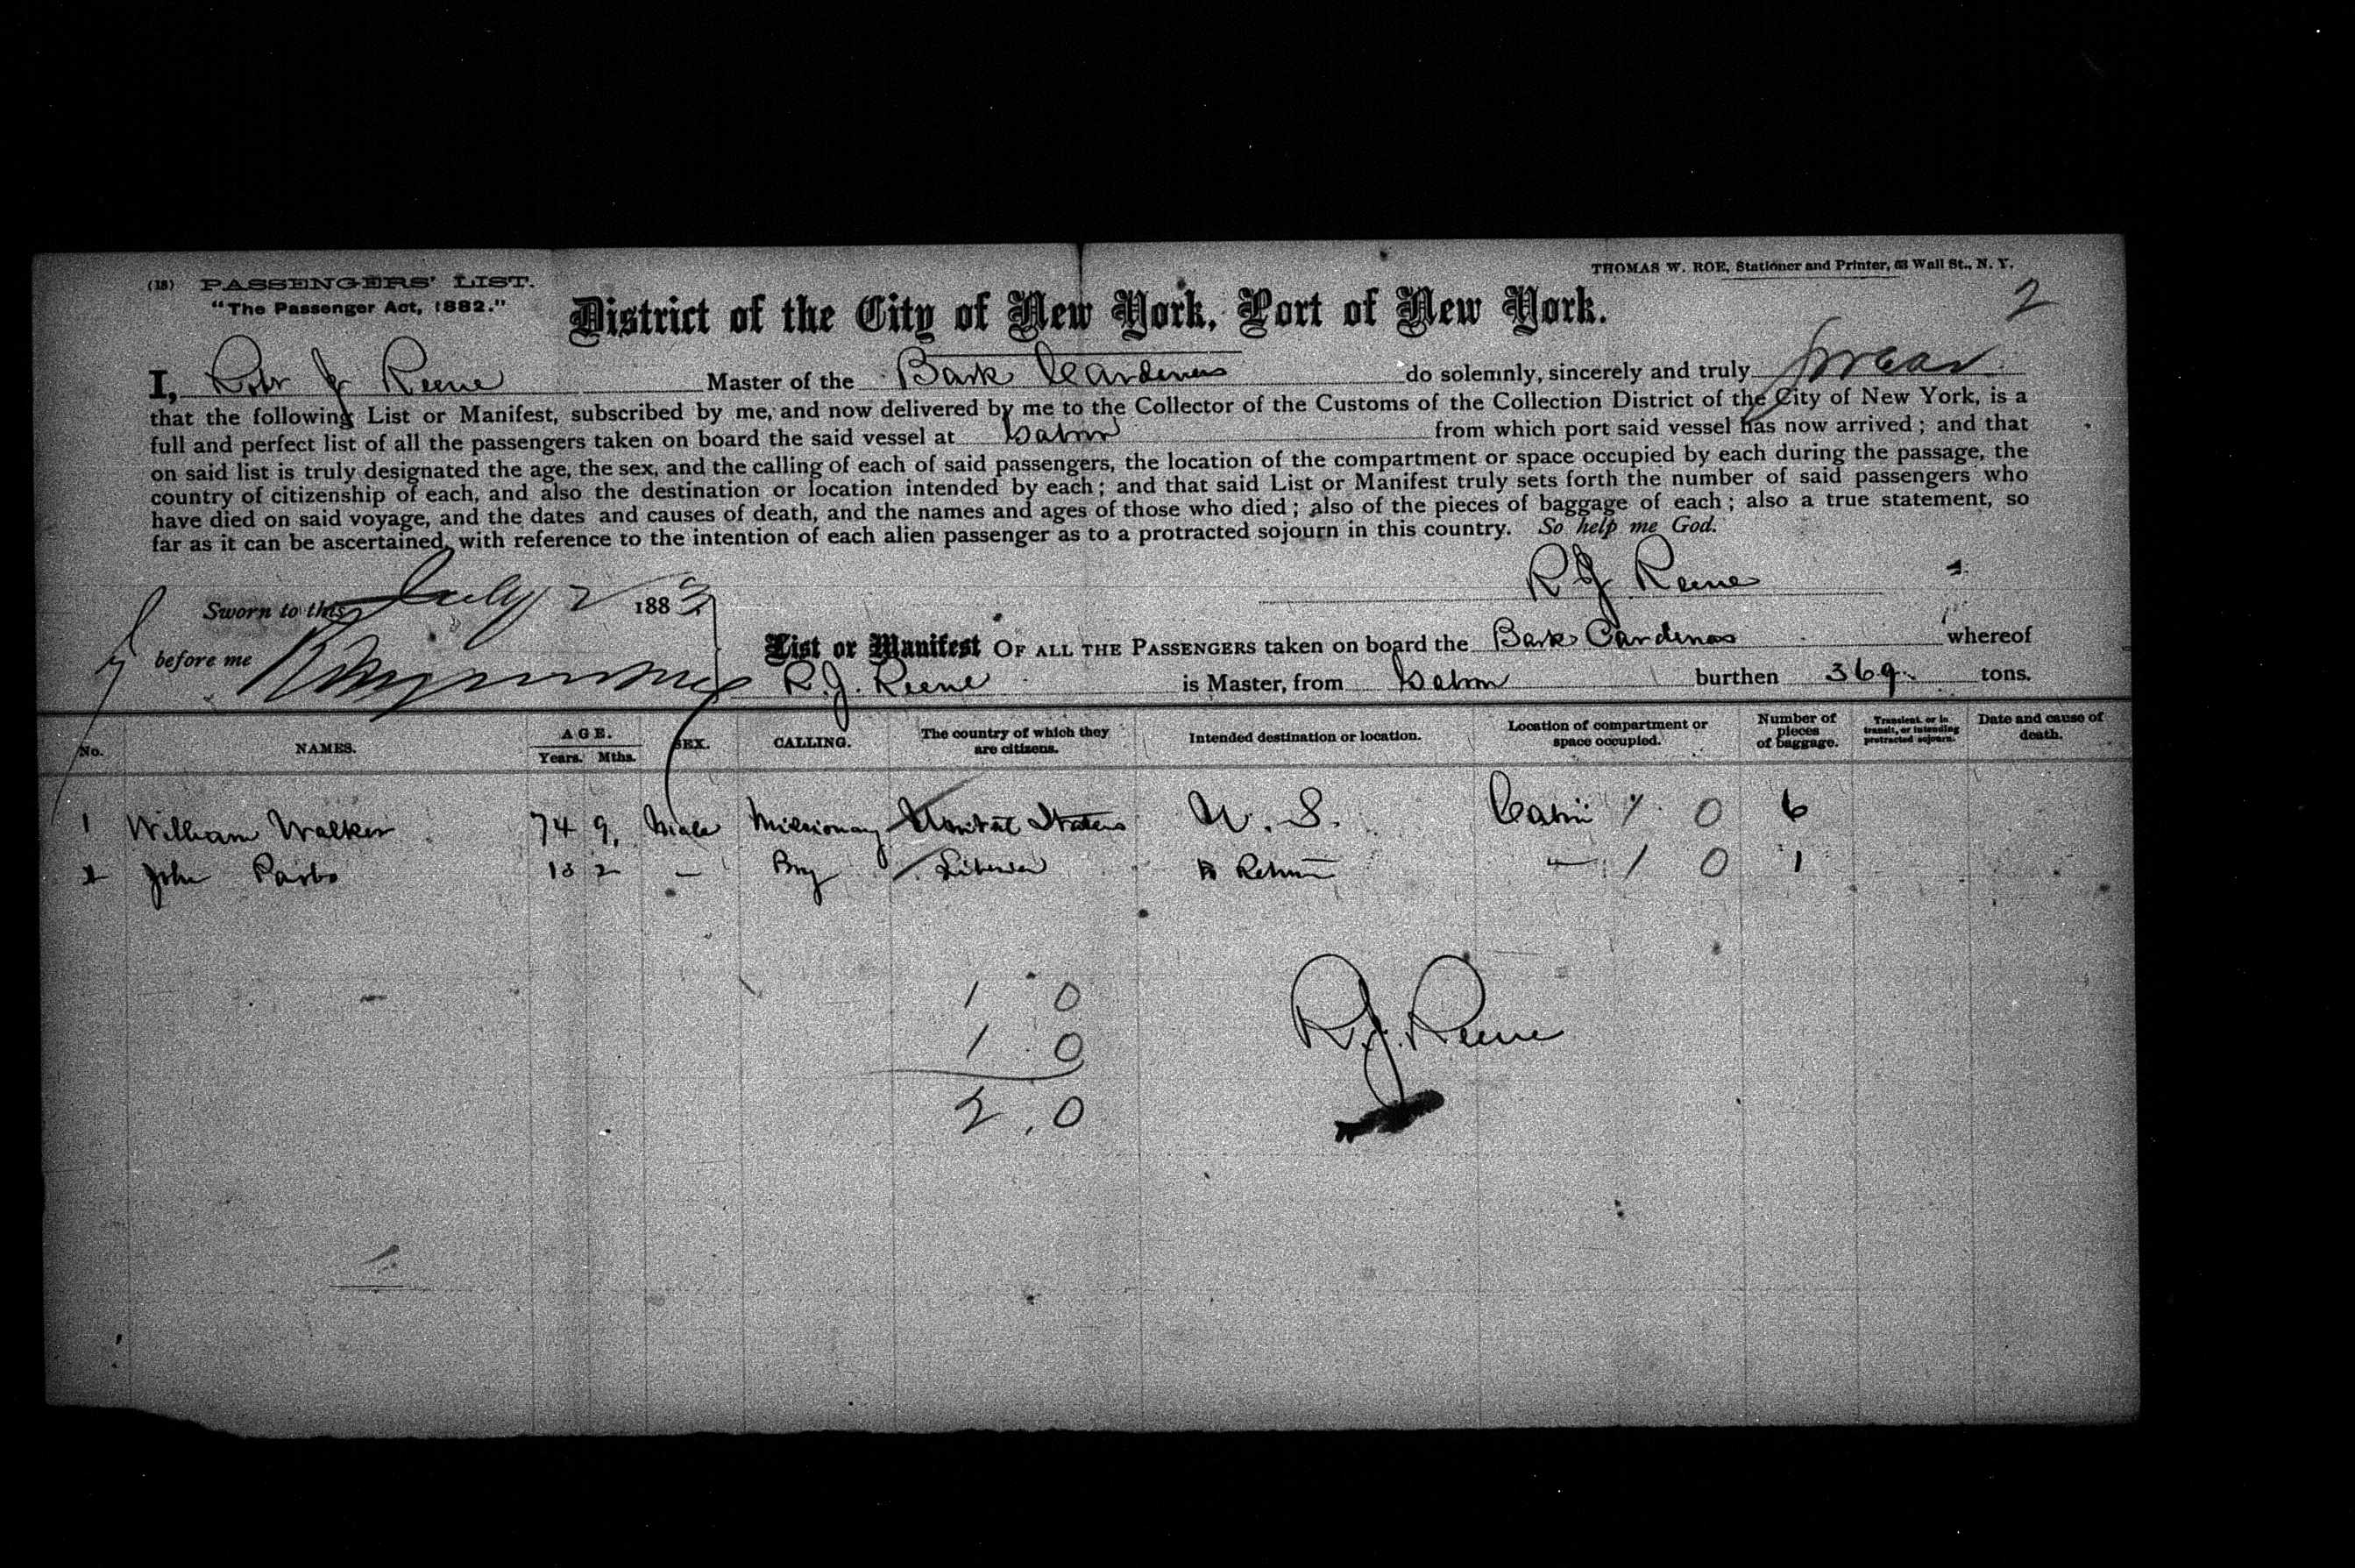 (18) PASSENGERS' LIST.
"The Passenger Act, 1882."
THOMAS W. ROE, Stationer and Printer, 63 Wall St., N. Y.
2
District of the City of New York, Port of New York.
I, Robr J Reene Master of the Bark Cardenas do solemnly, sincerely and truly Swear
that the following List or Manifest, subscribed by me, and now delivered by me to the Collector of the Customs of the Collection District of the City of New York, is a
full and perfect list of all the passengers taken on board the said vessel at Gabon from which port said vessel has now arrived; and that
on said list is truly designated the age, the sex, and the calling of each of said passengers, the location of the compartment or space occupied by each during the passage, the
country of citizenship of each, and also the destination or location intended by each; and that said List or Manifest truly sets forth the number of said passengers who
have died on said voyage, and the dates and causes of death, and the names and ages of those who died; also of the pieces of baggage of each; also a true statement, so
far as it can be ascertained, with reference to the intention of each alien passenger as to a protracted sojourn in this country. So help me God.
R J Reene
Sworn to this July 2 1883
before me
List or Manifest OF ALL THE PASSENGERS taken on board the Bark Cardenas whereof
R. J. Reene is Master, from Gabon burthen 369 tons.
No. NAMES. AGE. Years. Mths. SEX. CALLING. The country of which they are citizens. Intended destination or location. Location of compartment or space occupied. Number of pieces of baggage. Transient, or in transit, or intending protracted sojourn. Date and cause of death.
1 William Walker 74 9 Male Missionary United States U. S. Cabin 1 0 6
2 John 13 2 — Boy Liberia to Return — 1 0 1
1 0
1 0
2 0
R. J. Reene